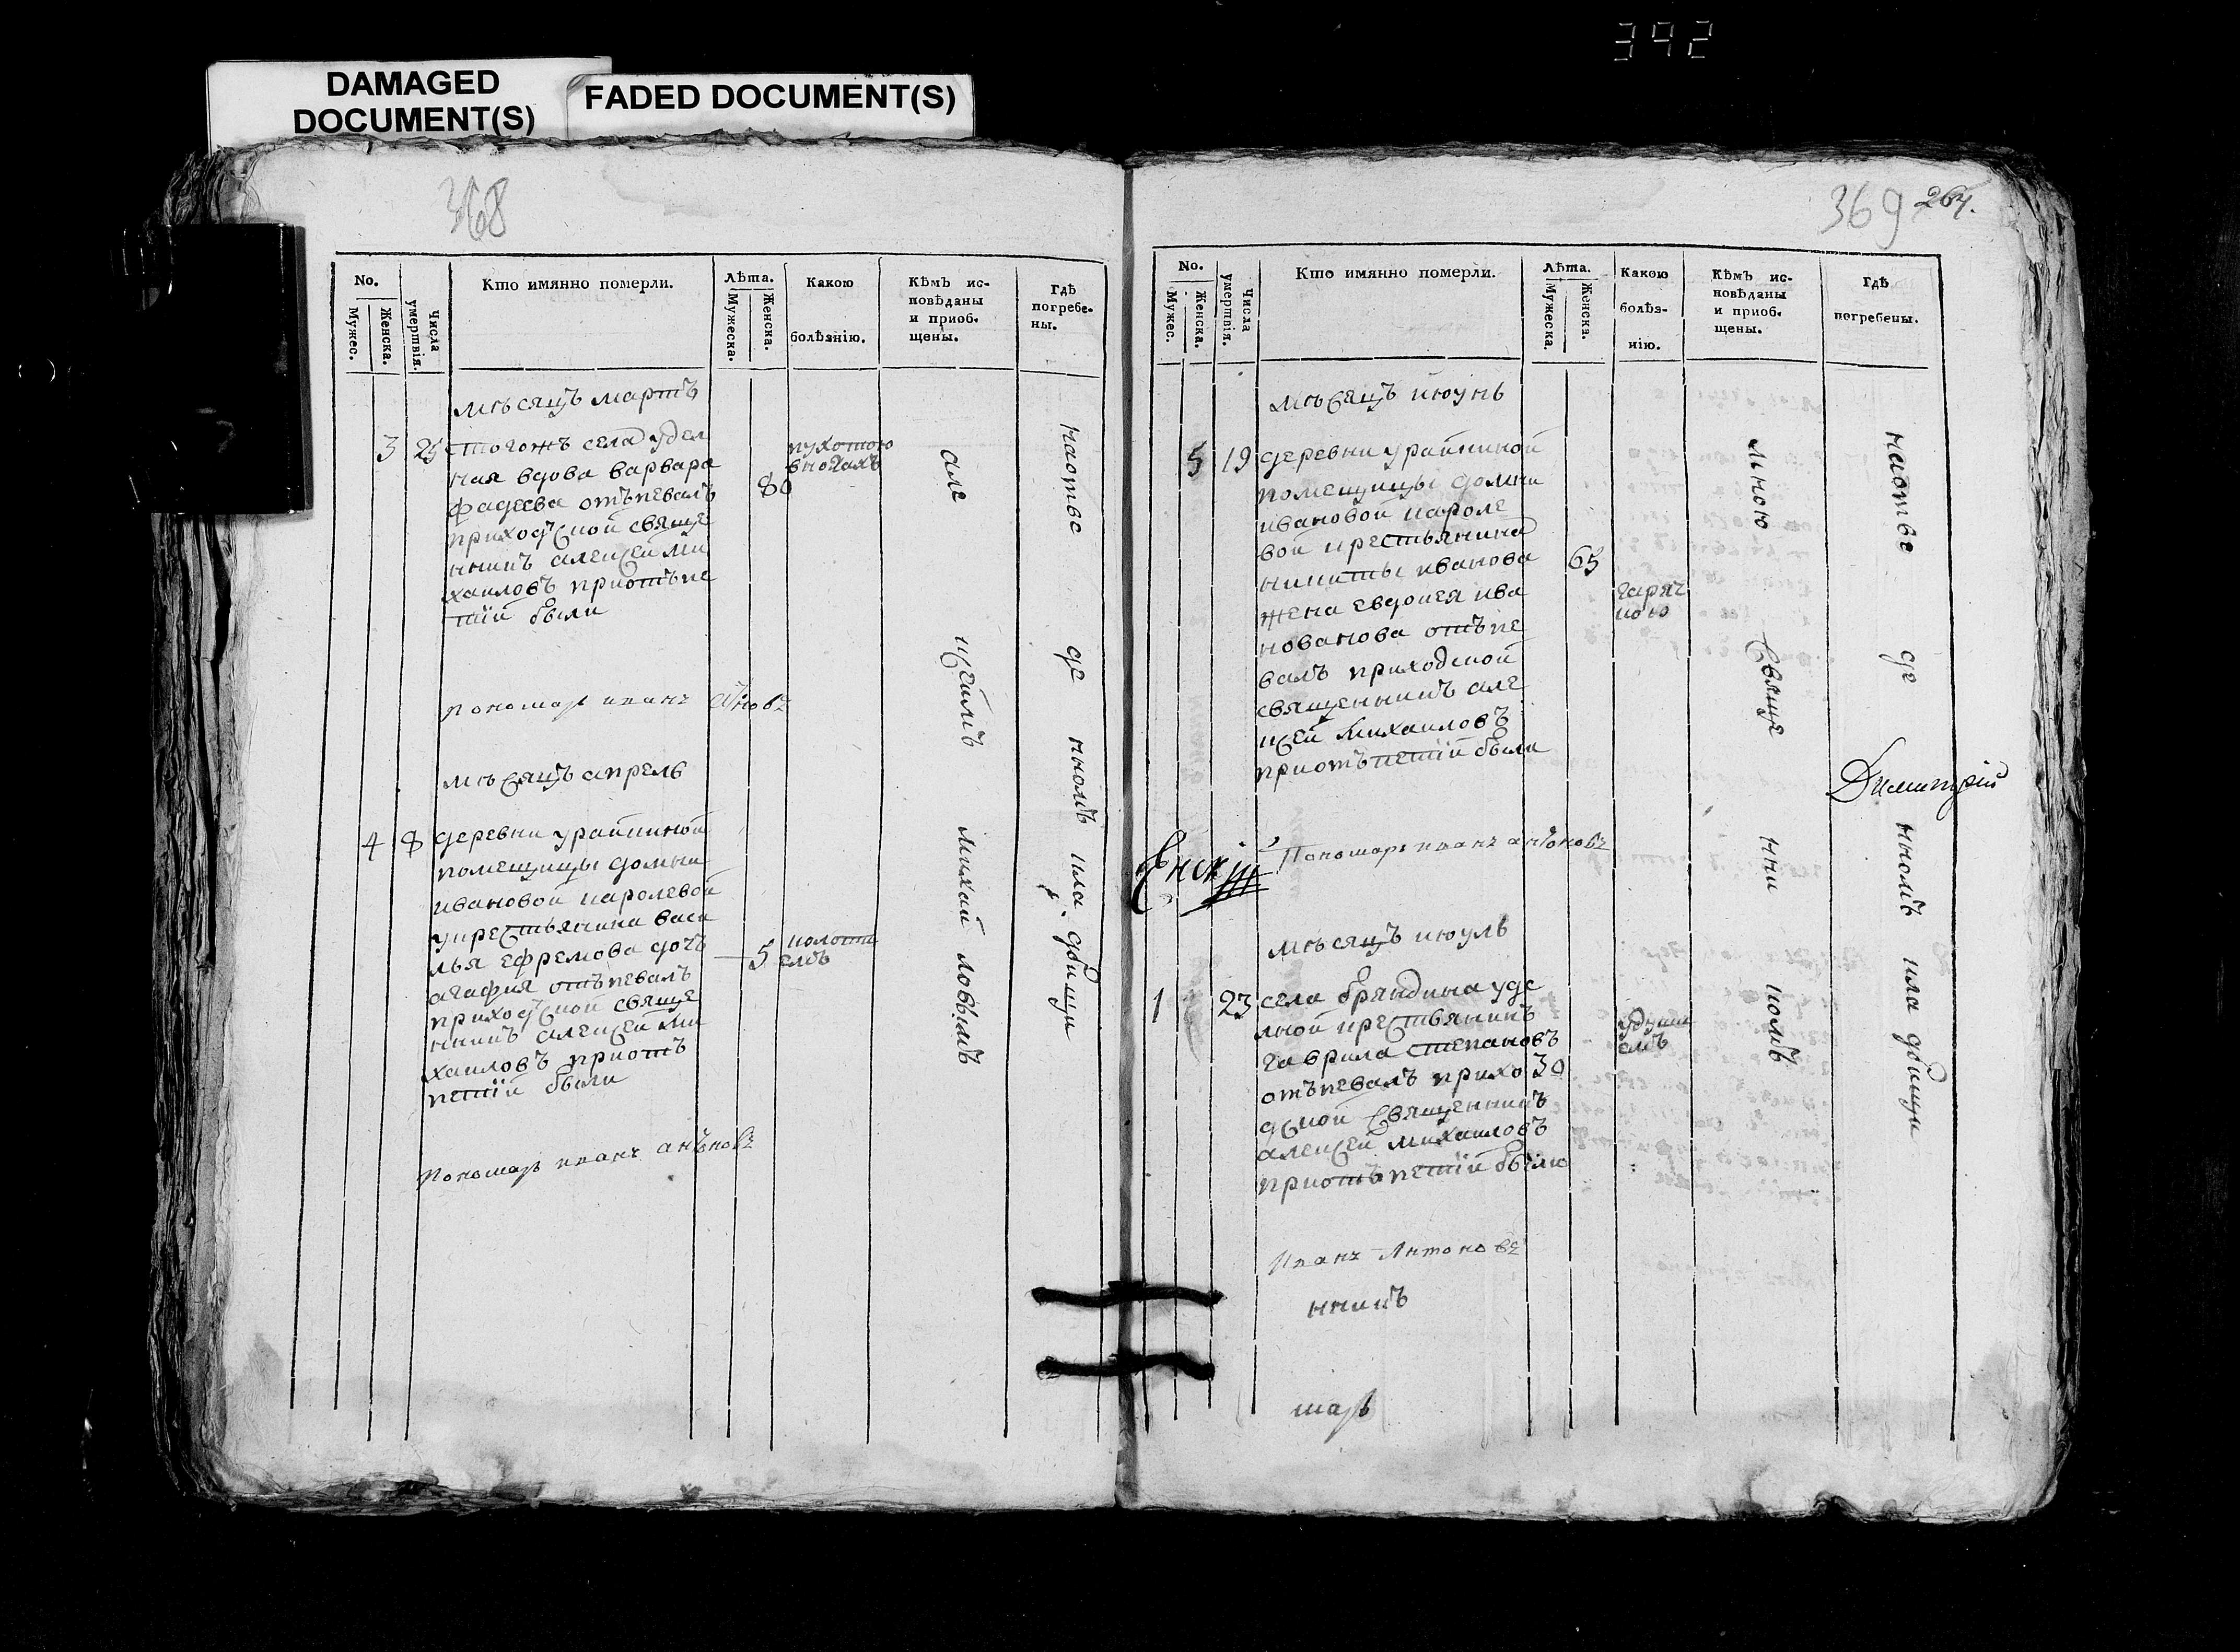 392
DAMAGED
DOCUMENT(S)
FADED DOCUMENT(S)
368
No.
Мужес.
Женска.
Числа
умертвія.
Кто имянно померли.
Лѣта.
Мужеска.
Женска.
Какою
болѣзнію.
Кѣмъ ис-
повѣданы
и приоб-
щены.
Гдѣ
погребе-
ны.
мѣсяцъ мартъ
3 25 тогожъ села удел
ная вдова варвара
фадеева отъпевалъ
приходской свяще
нникъ алексей ми
хаиловъ приотъпе
тїи были
80
пухотою
вногахъ
пономарь иванъ
мѣсяцъ апрель
4 8 деревни урайкиной
помещицы домны
ивановой каролевой
укрестьянина васи
лья ефремова дочъ
агафия отъпевалъ
приходской свяще
нникъ алексей ми
хаиловъ приотъ
петїи были
5
колоти
емъ
пономарь иванъ
але
ксеимъ
михаи
ловымъ
наотве
де
нномъ
кла
дбищи
369 264.
No.
Мужес.
Женска.
Числа
умертвія.
Кто имянно померли.
Лѣта.
Мужеска.
Женска.
Какою
болѣз-
нію.
Кѣмъ ис-
повѣданы
и приоб-
щены.
Гдѣ
погребены.
мѣсяцъ июунь
5 19 деревни урайкиной
помещицы домны
ивановой кароле
вой крестьянина
никиты иванова
жена евдокея ива
нованова отъпе
валъ приходской
священникъ але
ксей михаиловъ
приотъпетїи были
65
гаряч
кою
Пономарь иванъ антоновъ
мѣсяцъ июуль
1 23 села бряндина уде
лной крестьянинъ
гаврила степановъ
отъпевалъ прихо
дской священникъ
алексей михаиловъ
приотъпетїи было
30
удуши
емъ
Иванъ Антоновъ
нникъ
марь
мною
свяще
нни
комъ
наотве
де
нномъ
кла
дбищи
Димитрій